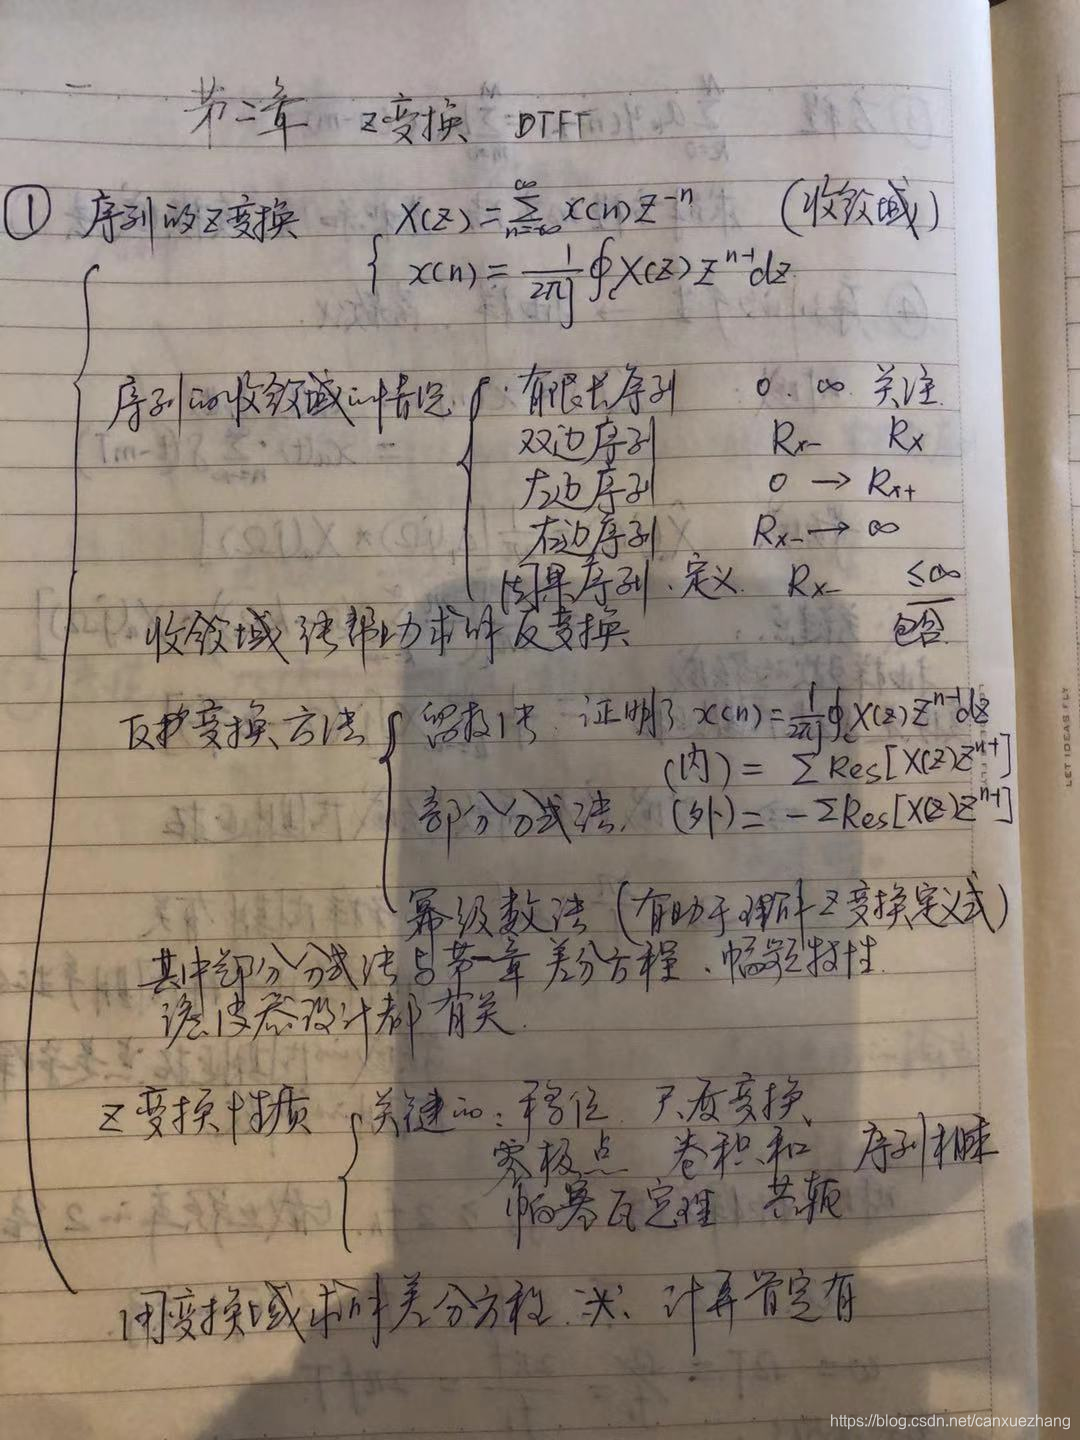 第二章 Z变换 DTFT
① 序列的Z变换 X(z)=∑_{n=-∞}^{∞} x(n)z^{-n} (收敛域)
x(n)=\frac{1}{2πj}∮_c X(z)z^{n-1}dz
序列的收敛域的情况 有限长序列 0. ∞ 关注.
双边序列 Rx- Rx
左边序列 0 → Rx+
右边序列 Rx- → ∞
因果序列.定义. Rx- ≤∞
收敛域 能帮助求解反变换 包含
反变换方法 留数法. 证明了 x(n)=\frac{1}{2πj}∮_c X(z)z^{n-1}dz
(内)= ΣRes[X(z)z^{n-1}]
部分分式法. (外)= -ΣRes[X(z)z^{n-1}]
幂级数法 (有助于理解Z变换定义式)
其中部分分式法与第一章差分方程、幅频特性.
滤波器设计都有关.
Z变换性质 关键的: 移位. 尺度变换、
零极点 卷积和 序列相乘
帕塞瓦定理 共轭
用变换域求解差分方程. 计算肯定有
LET IDEAS FLY
https://blog.csdn.net/canxuezhang